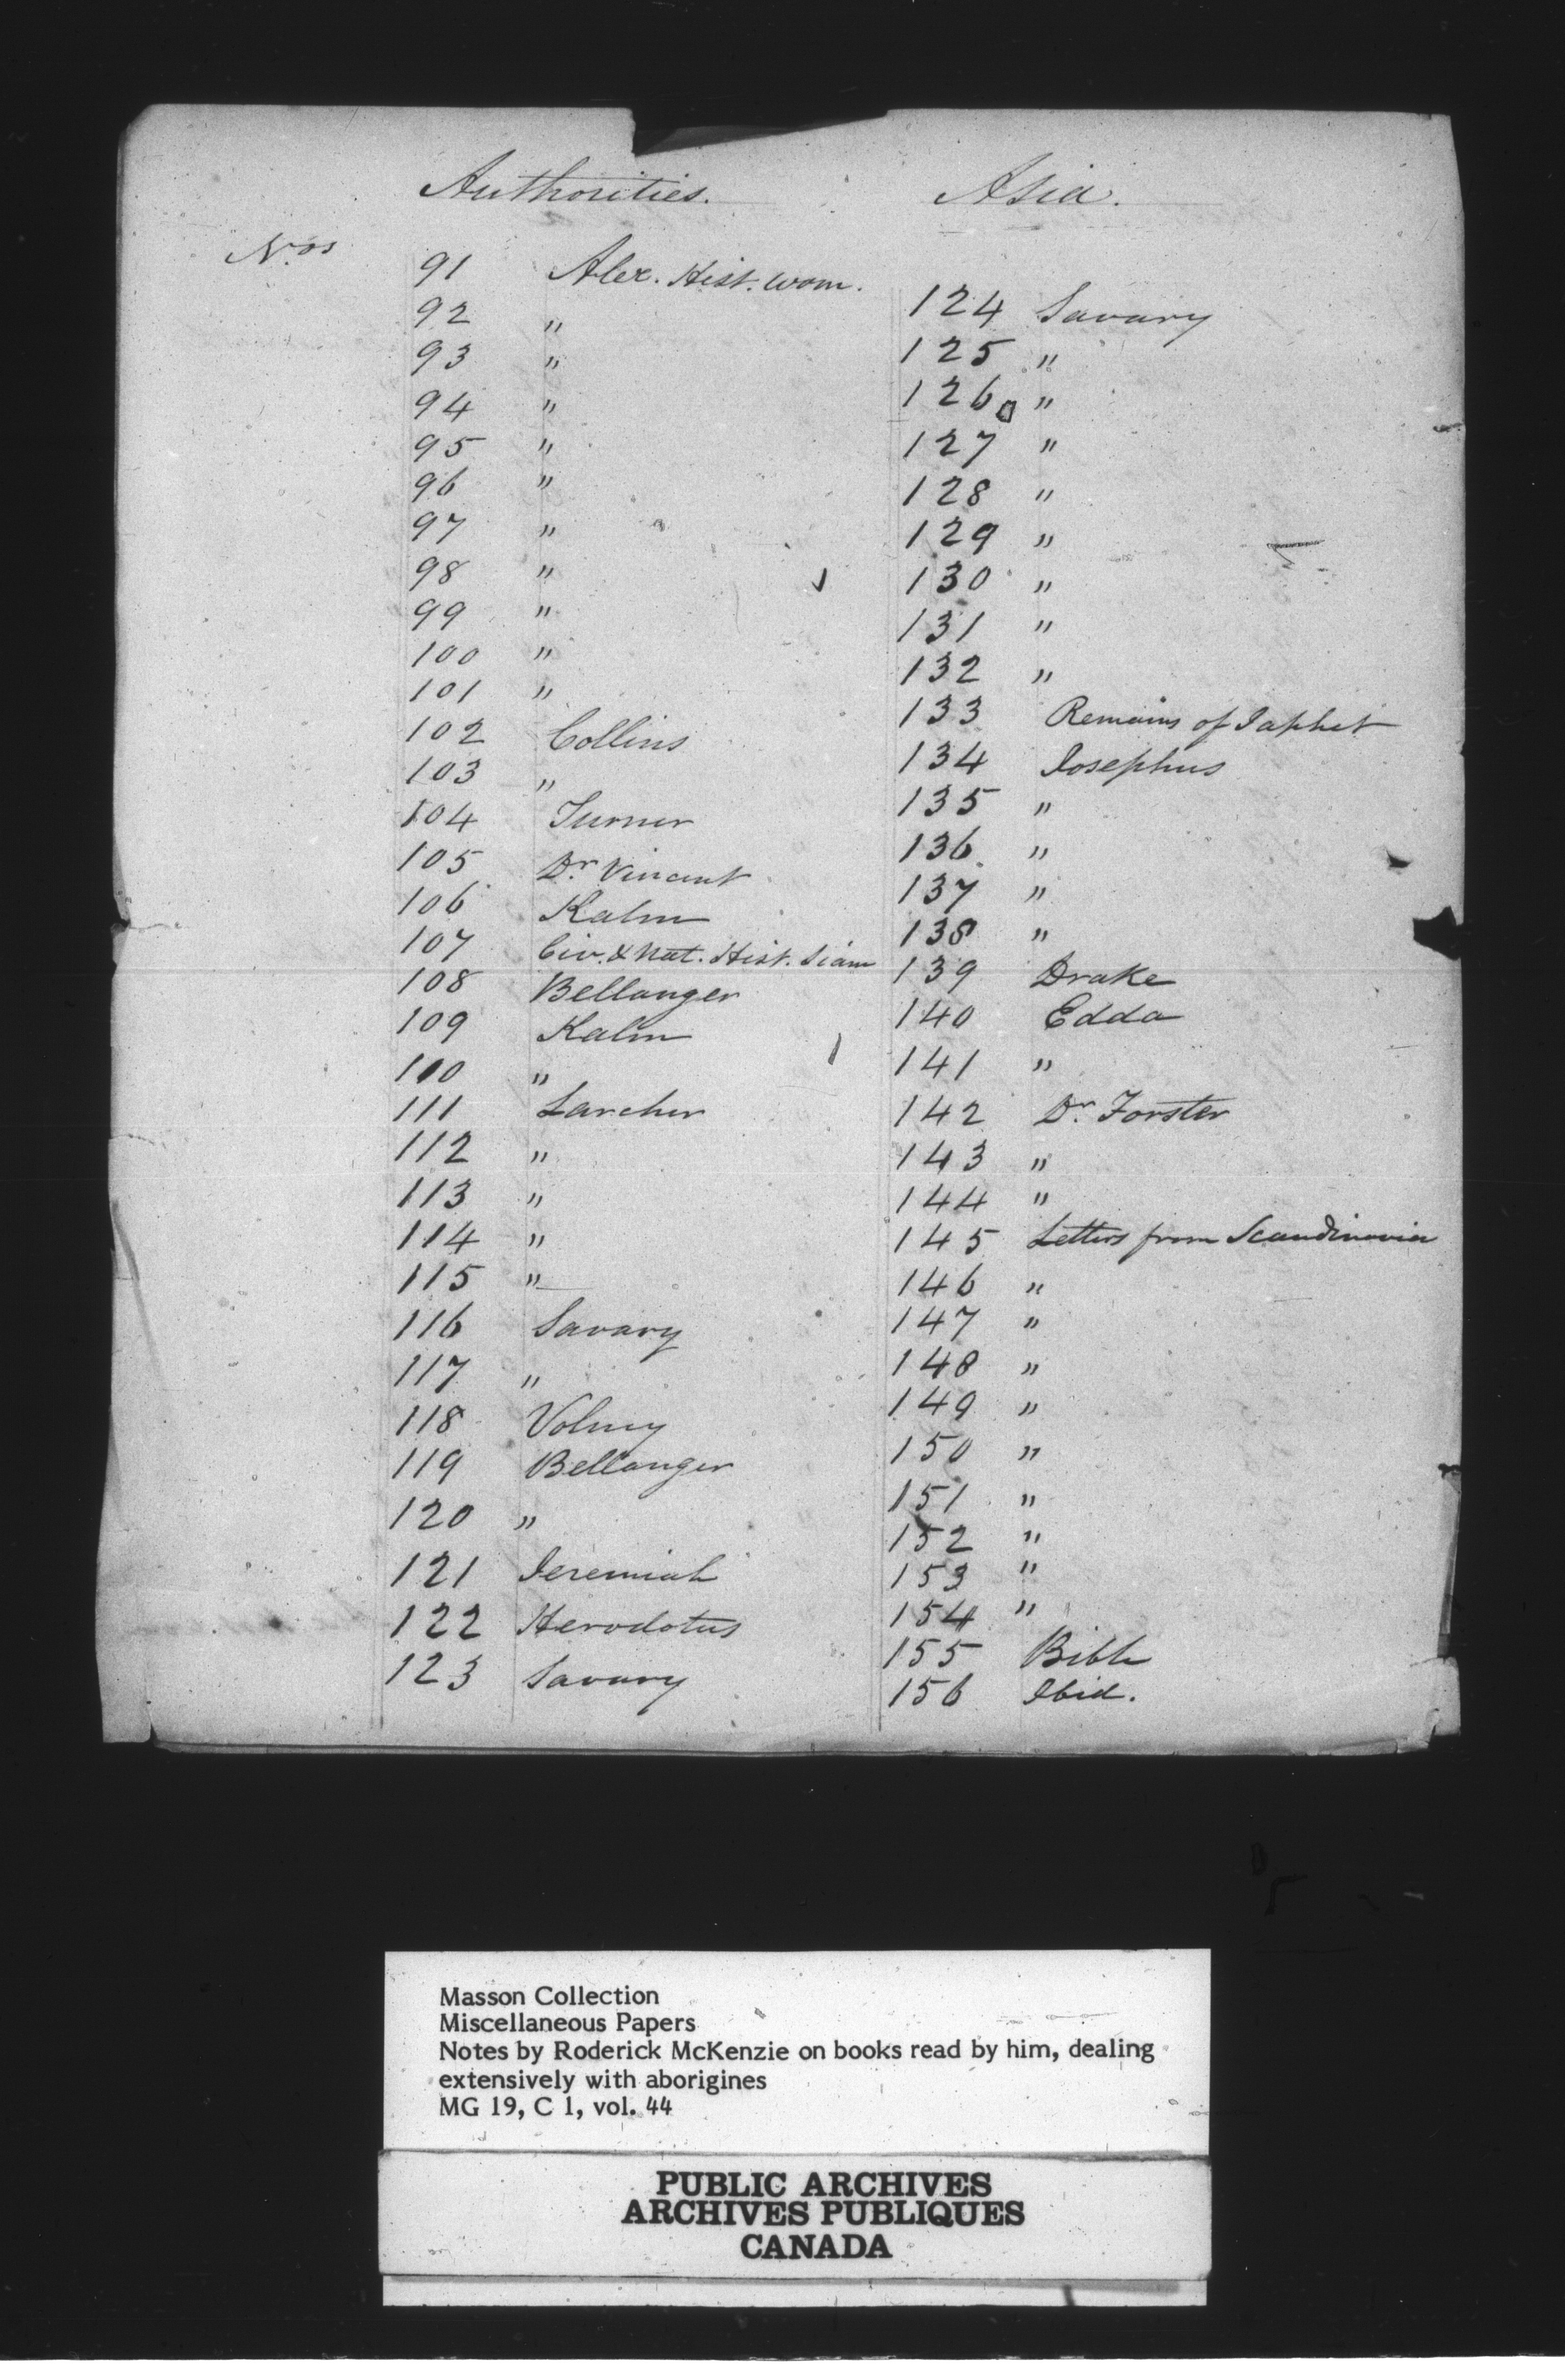 Authorities. Asia.
Nos
91 Alex. Hist. Wom.
92 "
93 "
94 "
95 "
96 "
97 "
98 "
99 "
100 "
101 "
102 Collins
103 "
104 Turner
105 Dr. Vincent
106 Kalm
107 Civ. & Nat. Hist. Siam
108 Bellanger
109 Kalm
110 "
111 Larcher
112 "
113 "
114 "
115 "
116 Savary
117 "
118 Volney
119 Bellanger
120 "
121 Jeremiah
122 Herodotus
123 Savary
124 Savary
125 "
126 "
127 "
128 "
129 "
130 "
131 "
132 "
133 Remains of Japhet
134 Josephus
135 "
136 "
137 "
138 "
139 Drake
140 Edda
141 "
142 Dr. Forster
143 "
144 "
145 Letters from Scandinavia
146 "
147 "
148 "
149 "
150 "
151 "
152 "
153 "
154 "
155 Bible
156 Ibid.
Masson Collection
Miscellaneous Papers
Notes by Roderick McKenzie on books read by him, dealing
extensively with aborigines
MG 19, C 1, vol. 44
PUBLIC ARCHIVES
ARCHIVES PUBLIQUES
CANADA